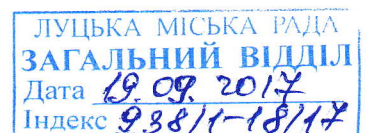 ЛУЦЬКА МІСЬКА РАДА
ЗАГАЛЬНИЙ ВІДДІЛ
Дата 19.09.2017
Індекс 938/1-18/17